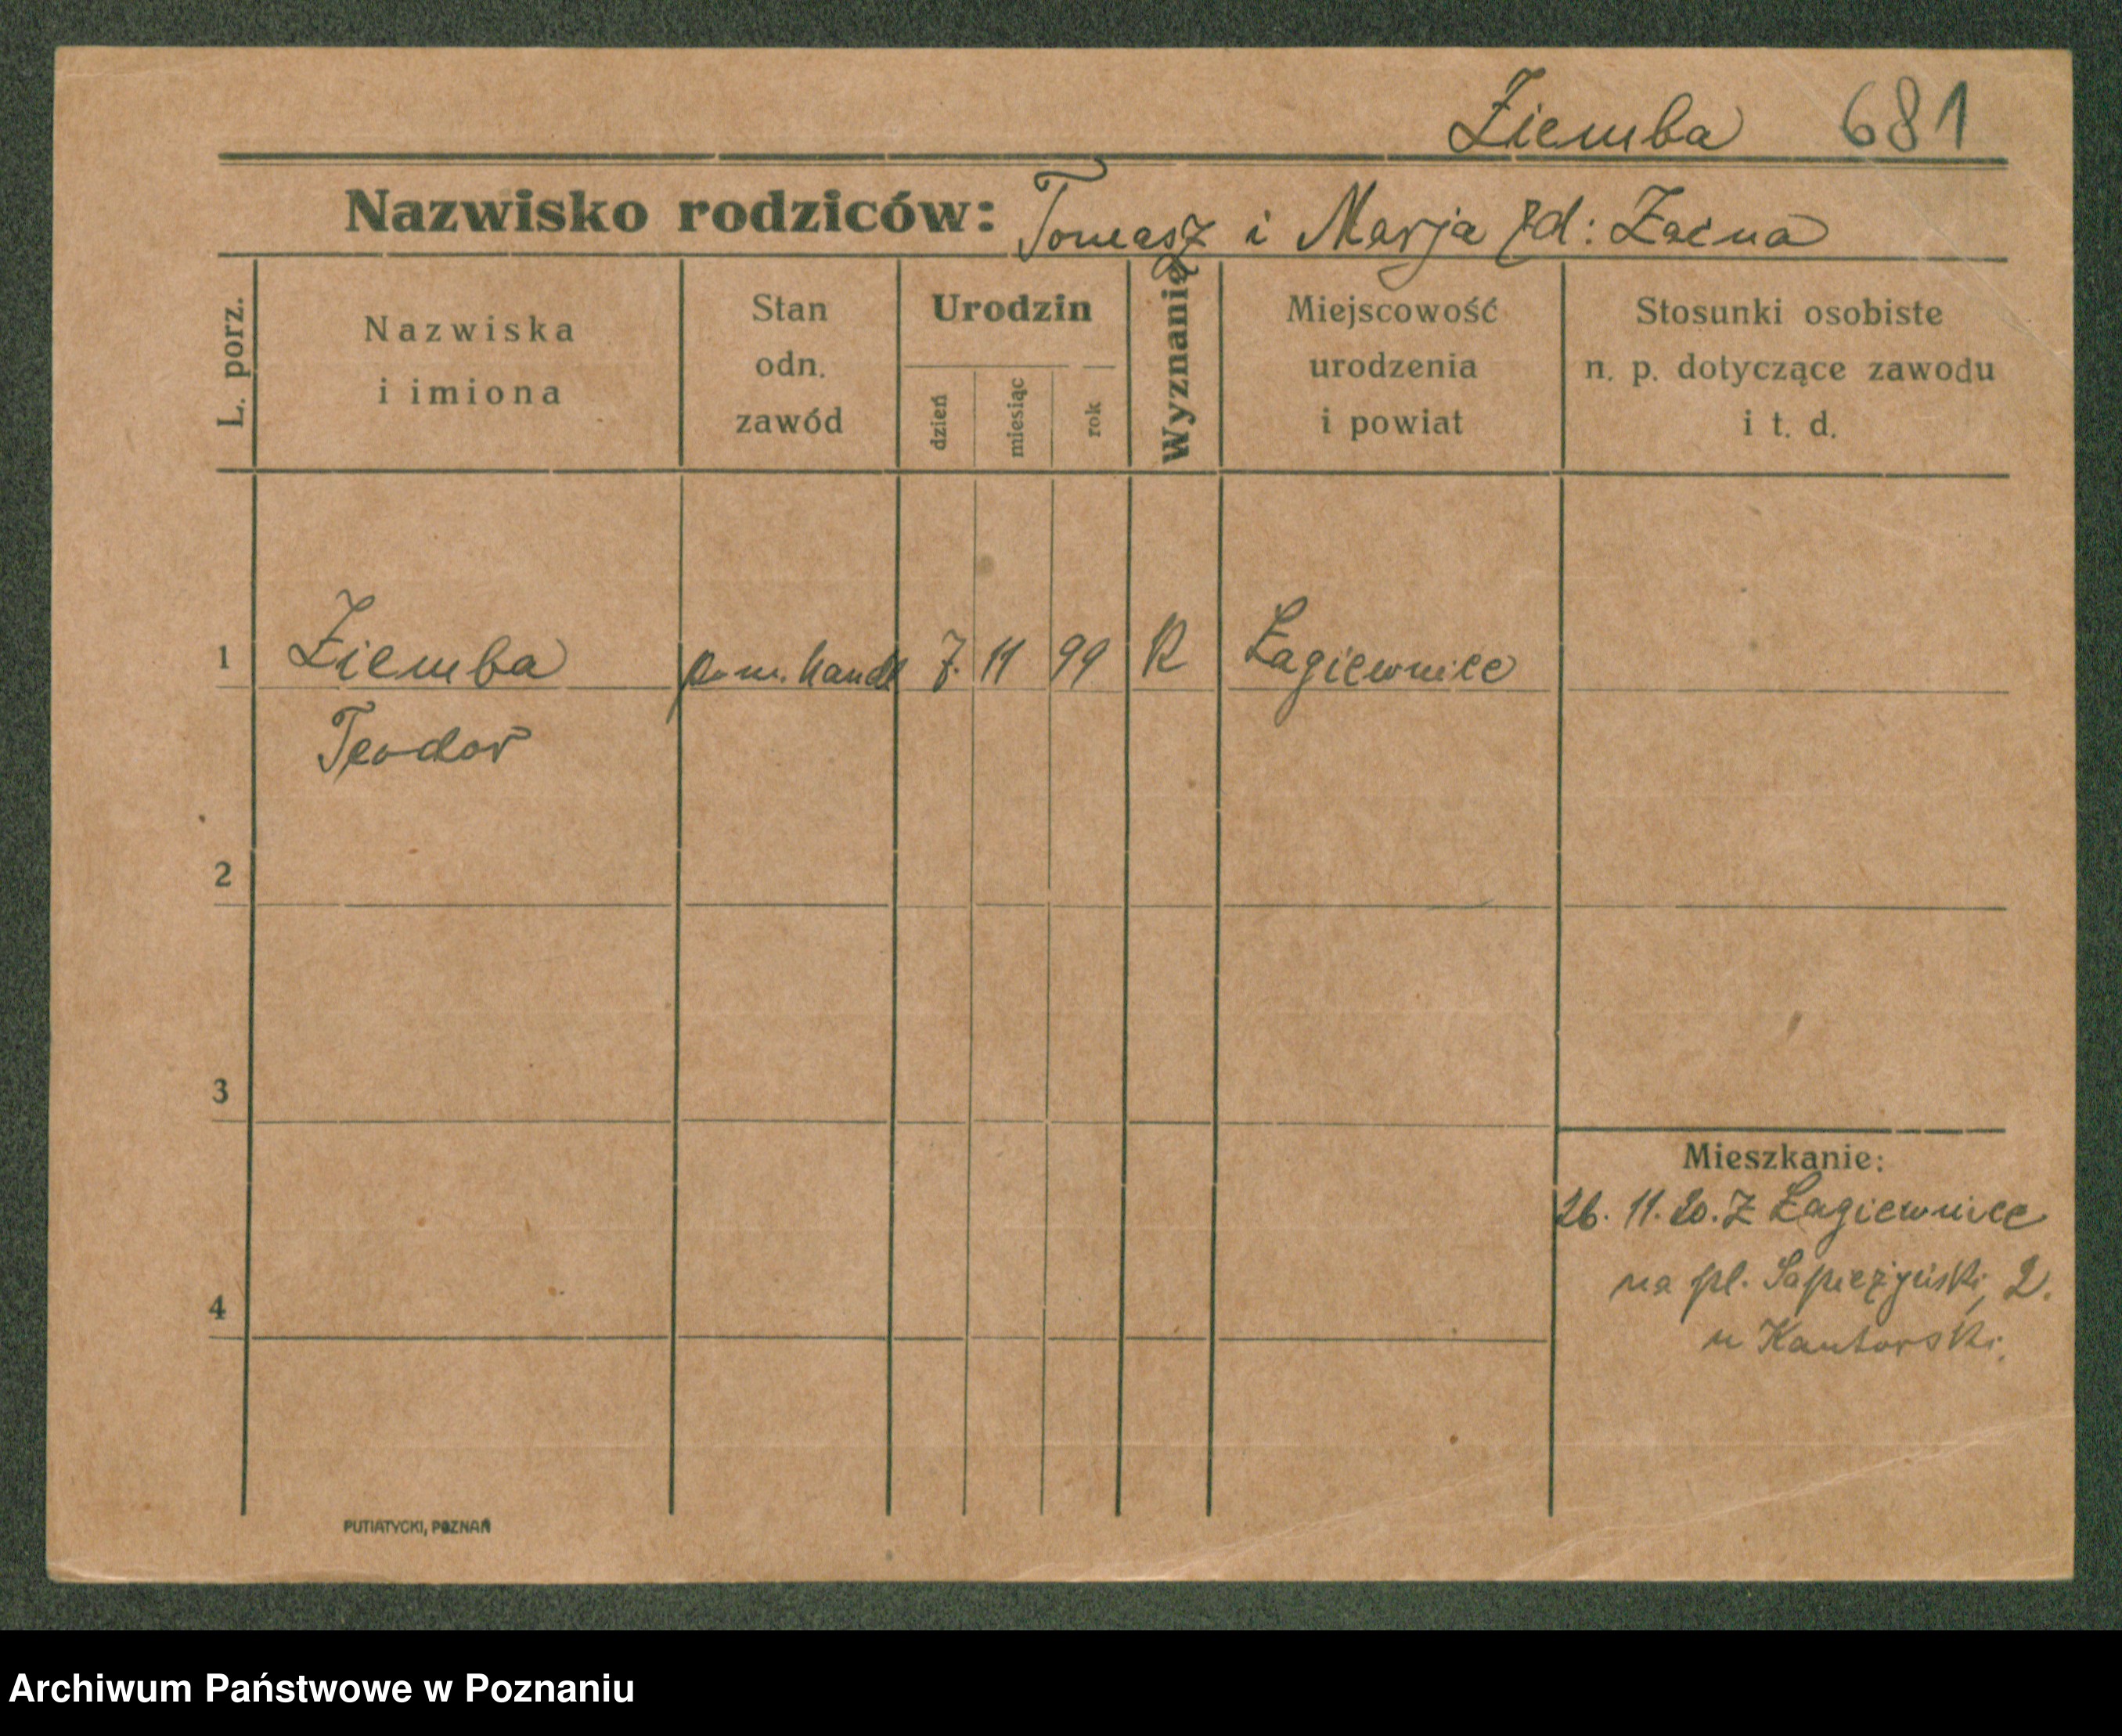 Ziemba 681
Nazwisko rodziców: Tomasz i Marja zd:
L. porz.
Nazwiska
i imiona
Stan
odn.
zawód
Urodzin
dzień
miesiąc
rok
Wyznanie
Miejscowość
urodzenia
i powiat
Stosunki osobiste
n. p. dotyczące zawodu
i t. d.
1 Ziemba pom. handl 7. 11 99 R Łagiewnice
Teodor
2
3
4
Mieszkanie:
26. 11. 20. Z Łagiewnice
na pl. Sapieżyński, 2.
u Kantorski.
PUTIATYCKI, POZNAŃ
Archiwum Państwowe w Poznaniu